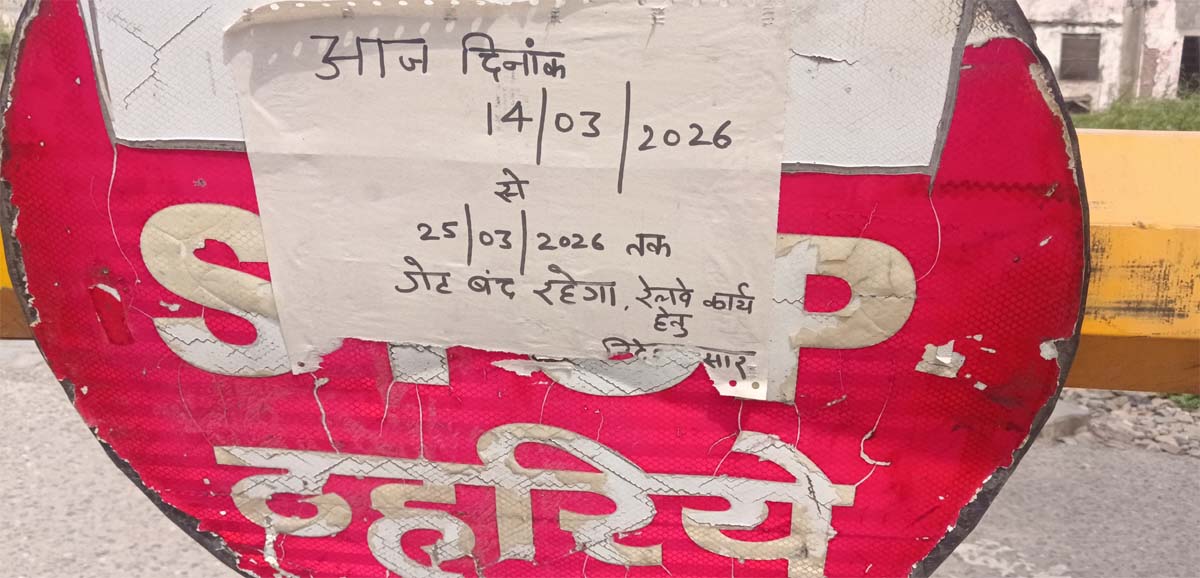 आज दिनांक
14/03/2026
से
25/03/2026 तक
गेट बंद रहेगा, रेलवे कार्य
हेतु
STOP
ठहरिये